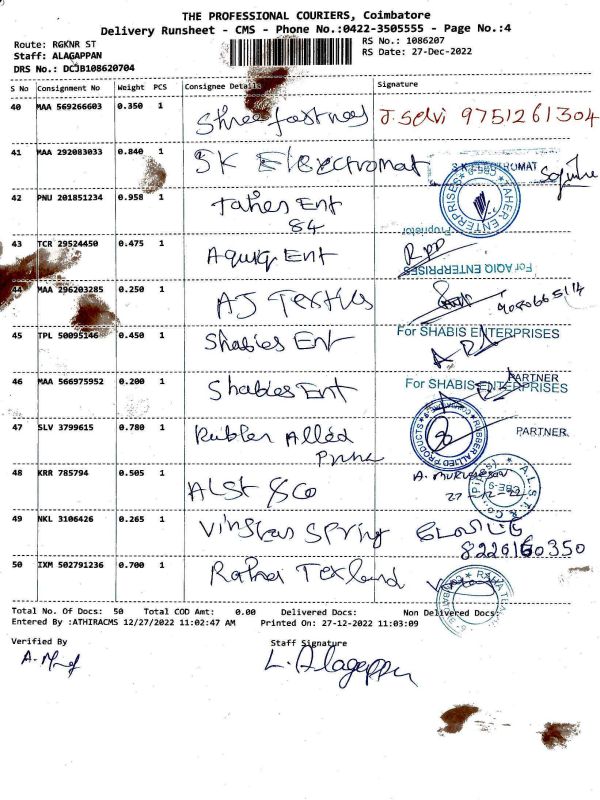 THE PROFESSIONAL COURIERS, Coimbatore
Delivery Runsheet - CMS - Phone No.:0422-3505555 - Page No.:4
Route: RGKNR ST
RS No.: 1086207
Staff: ALAGAPPAN
RS Date: 27-Dec-2022
DRS No.: DCJB108620704
S No Consignment No Weight PCS Consignee Details Signature
40 MAA 569266603 0.350 1 J. Selvi 9751261304
41 MAA 292083033 0.840 1 SK Electromat S K ELECTROMAT
42 PNU 201851234 0.958 1 Taher Ent TAHER ENTERPRISES CBE-9
84 Proprietor
43 TCR 29524450 0.475 1 Aquiq Ent RPP
For AQIQ ENTERPRISES
44 MAA 296203285 0.250 1 AJ Textiles
45 TPL 50095146 0.450 1 Shabies Ent For SHABIS ENTERPRISES
PARTNER
46 MAA 566975952 0.200 1 Shabies Ent For SHABIS ENTERPRISES
47 SLV 3799615 0.780 1 Rubber Allied RUBBER ALLIED PRODUCTS PARTNER.
48 KRR 785794 0.505 1 ALST & Co A. MURUGESAN A.L.S.T. & Co. CBE-9
27-12-22
49 NKL 3106426 0.265 1 Spring
8220160350
50 IXM 502791236 0.700 1 Ratna Texland
Total No. Of Docs: 50 Total COD Amt: 0.00 Delivered Docs: Non Delivered Docs:
Entered By :ATHIRACMS 12/27/2022 11:02:47 AM Printed On: 27-12-2022 11:03:09
Verified By Staff Signature
L. Alagappan